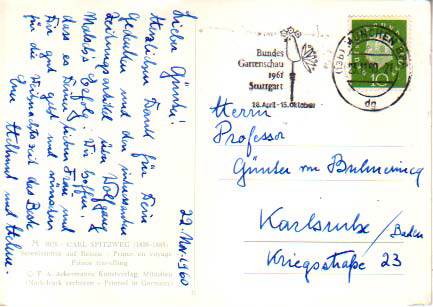 Lieber Günter!
Herzlichen Dank für Dein
Gedenken und den interessanten
Zeitungsartikel über Wolfgang &
Erfolg. Wir hoffen,
dass es Deiner lieben Frau und
Dir gut geht und wünschen
für die Weihnachtszeit das Beste
Eure Helmut und
22. Nov. 1960
CARL SPITZWEG (1808-1885)
Serenissimus auf Reisen · Prince en voyage
Prince travelling
C F A Ackermanns Kunstverlag, München
(Nachdruck verboten - Printed in Germany)
Bundes
Gartenschau
1961
Stuttgart
18. April - 15. Oktober
(13b) MÜNCHEN
dg
10
Herrn
Professor
Günter von Bulmerincq
Karlsruhe / Baden
Kriegsstraße 23